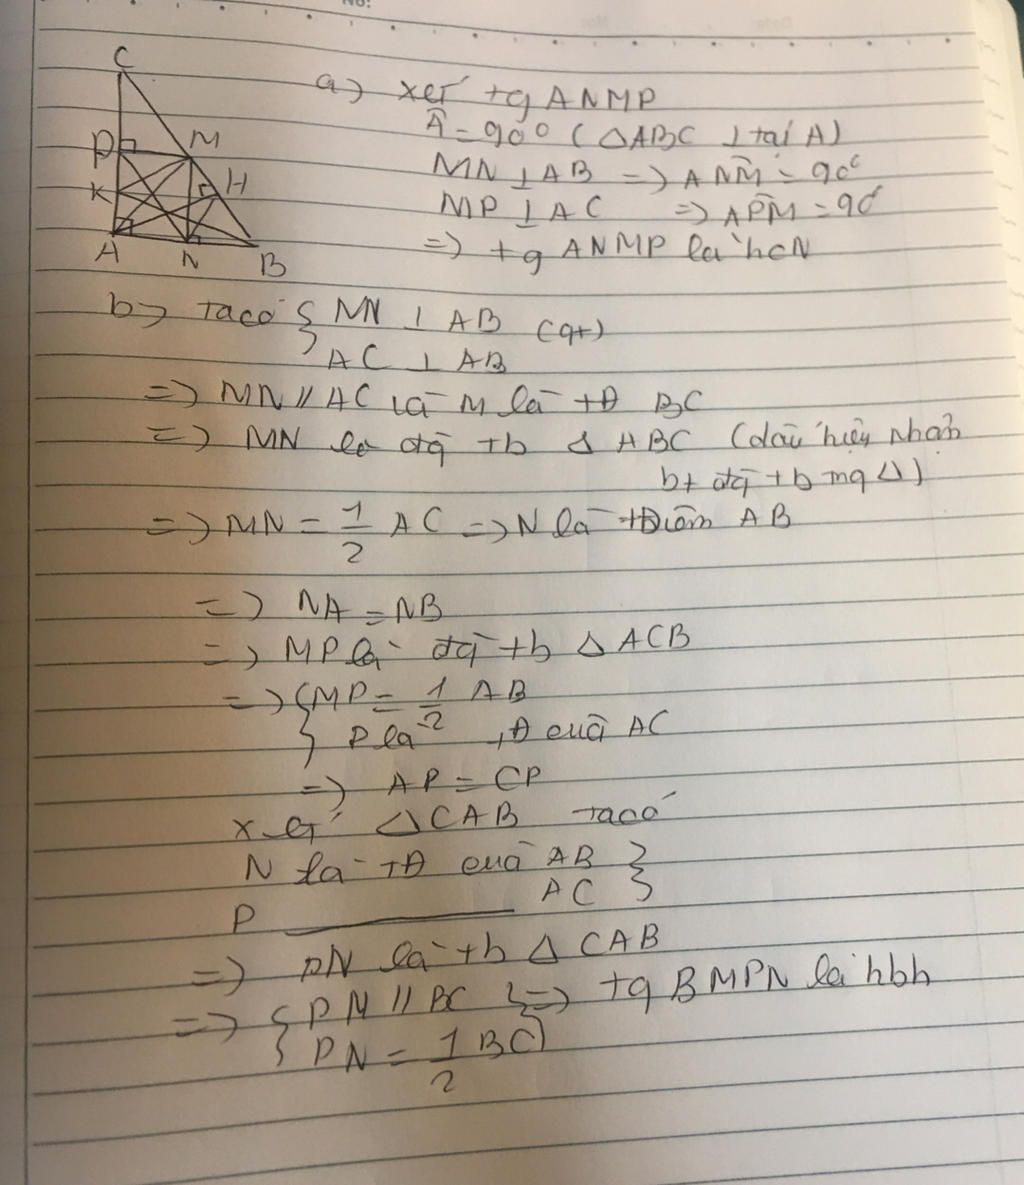 No:
C
P
M
K
H
A
N
B
a) xét tg ANMP
Â = 90° (△ABC ⊥ tại A)
MN ⊥ AB => AN̂M = 90°
MP ⊥ AC => AP̂M = 90°
=> tg ANMP là hcN
b) Ta có { MN ⊥ AB (gt)
AC ⊥ AB
=> MN // AC và M là tĐ BC
=> MN là đg tb △ ABC (dấu hiệu nhận
bt đg tb mg △)
=> MN = 1/2 AC => N là tĐiểm AB
=> NA = NB
=> MP là đg tb △ ACB
=> { MP = 1/2 AB
P là tĐ của AC
=> AP = CP
xét △CAB ta có
N là TĐ của AB }
P ———— AC
=> PN là tb △ CAB
=> { PN // BC } => tg BMPN là hbh
PN = 1/2 BC